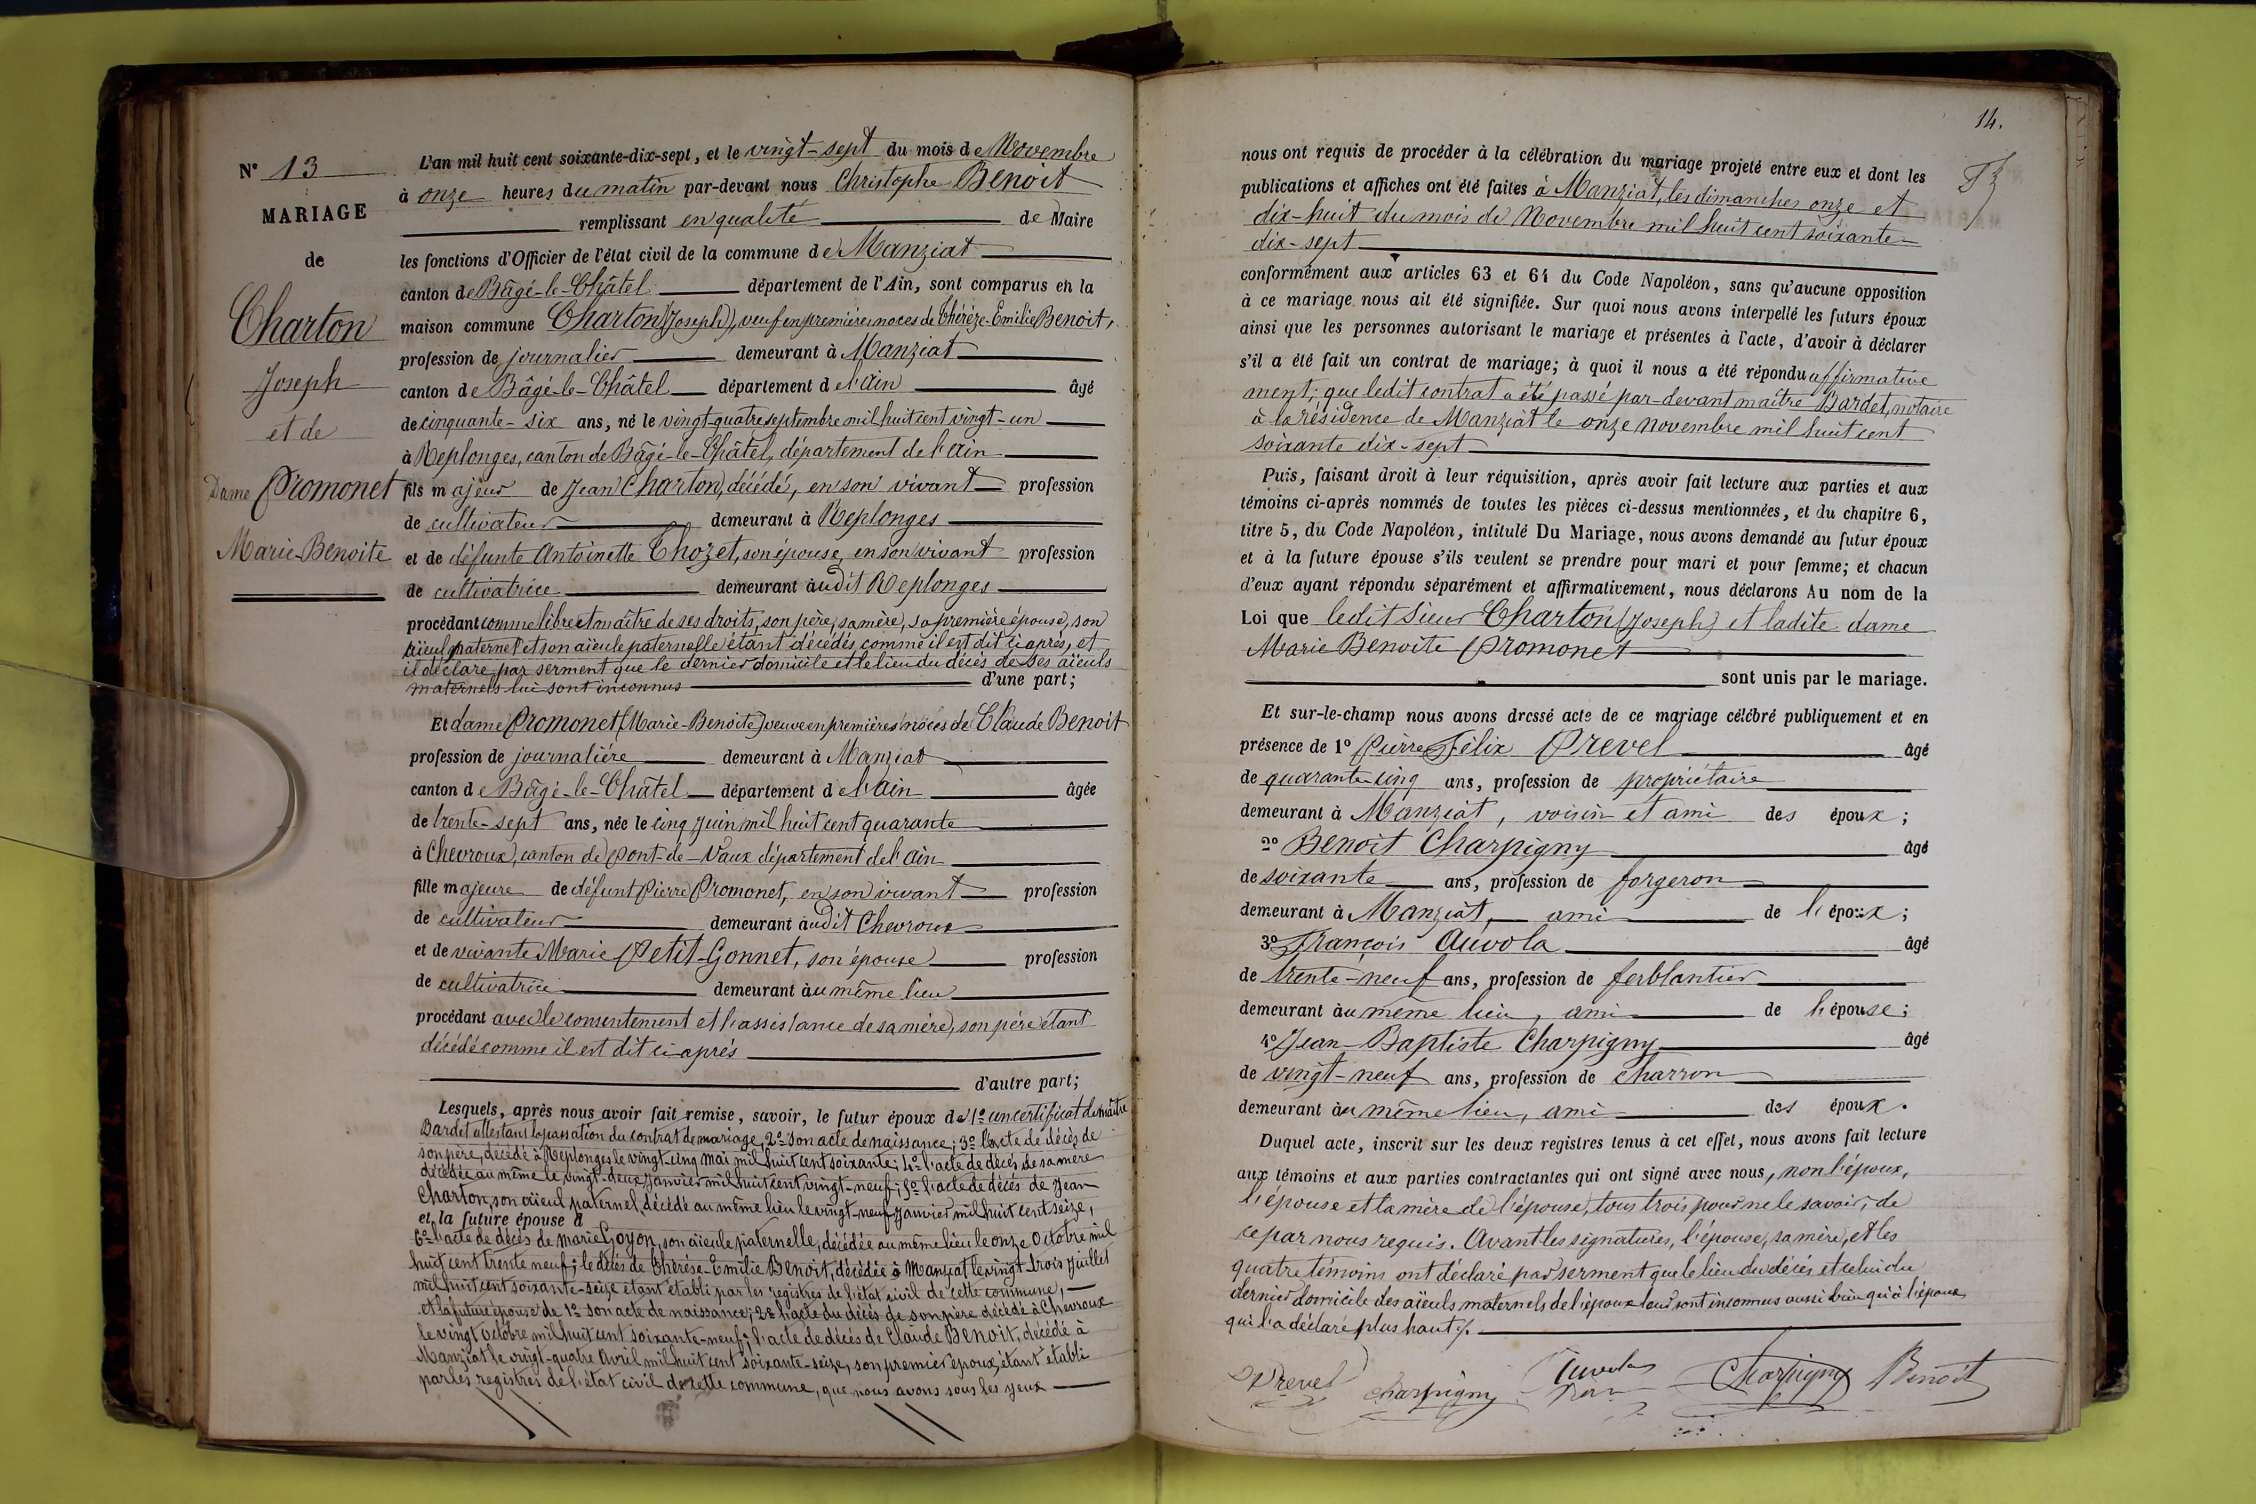 N° 13
MARIAGE
de
Charton
Joseph
et de
Dame Promonet
Marie-Benoite
L'an mil huit cent soixante-dix-sept, et le vingt-sept du mois de Novembre
à onze heures du matin par-devant nous Christophe Benoit
remplissant en qualité de Maire
les fonctions d'Officier de l'état civil de la commune de Manziat
canton de Bâgé-le-Châtel département de l'Ain, sont comparus en la
maison commune Charton (Joseph), veuf en premières noces de Thérèze-Emilie Benoit,
profession de journalier demeurant à Manziat
canton de Bâgé-le-Châtel département de l'Ain âgé
de cinquante-six ans, né le vingt-quatre septembre mil huit cent vingt-un
à Replonges, canton de Bâgé-le-Châtel, département de l'Ain
fils majeur de Jean Charton, décédé, en son vivant profession
de cultivateur demeurant à Replonges
et de défunte Antoinette Chozet, son épouse, en son vivant profession
de cultivatrice demeurant audit Replonges
procédant comme libre et maître de ses droits, son père, sa mère, sa première épouse, son
aïeul paternel et son aïeule paternelle étant décédés comme il est dit ci après, et
il déclare par serment que le dernier domicile et le lieu du décès de ses aïeuls
maternels lui sont inconnus d'une part;
Et dame Promonet (Marie-Benoite) veuve en premières noces de Claude Benoit
profession de journalière demeurant à Manziat
canton de Bâgé-le-Châtel département de l'Ain âgée
de trente-sept ans, née le cinq Juin mil huit cent quarante
à Chevroux, canton de Pont-de-Vaux département de l'Ain
fille majeure de défunt Pierre Promonet, en son vivant profession
de cultivateur demeurant audit Chevroux
et de vivante Marie Petit-Gonnet, son épouse profession
de cultivatrice demeurant au même lieu
procédant avec le consentement et l'assistance de sa mère, son père étant
décédé comme il est dit ci-après
d'autre part;
Lesquels, après nous avoir fait remise, savoir, le futur époux de 1° un certificat de maître
Bardet attestant la passation du contrat de mariage, 2° son acte de naissance; 3° l'acte de décès de
son père, décédé à Replonges le vingt-cinq mai mil huit cent soixante; 4° l'acte de décès de sa mère
décédée au même le vingt-deux Janvier mil huit cent vingt-neuf; 5° l'acte de décès de Jean
Charton, son aïeul paternel, décédé au même lieu le vingt-neuf Janvier mil huit cent seize,
et la future épouse d
6° l'acte de décès de Marie Goyon, son aïeule paternelle, décédée au même lieu le onze Octobre mil
huit cent trente neuf; le décès de Thérèse-Emilie Benoit, décédée à Manziat le vingt-trois Juillet
mil huit cent soixante-seize étant établi par les registres de l'état civil de cette commune,
et la future épouse de 1° son acte de naissance; 2° l'acte du décès de son père décédé à Chevroux
le vingt octobre mil huit cent soixante-neuf; l'acte de décès de Claude Benoit, décédé à
Manziat le vingt-quatre Avril mil huit cent soixante-seize, son premier époux, étant établi
par les registres de l'état civil de cette commune, que nous avons sous les yeux
14.
nous ont requis de procéder à la célébration du mariage projeté entre eux et dont les
publications et affiches ont été faites à Manziat, les dimanches onze et
dix-huit du mois de Novembre mil huit cent soixante-
dix-sept
conformément aux articles 63 et 64 du Code Napoléon, sans qu'aucune opposition
à ce mariage nous ait été signifiée. Sur quoi nous avons interpellé les futurs époux
ainsi que les personnes autorisant le mariage et présentes à l'acte, d'avoir à déclarer
s'il a été fait un contrat de mariage; à quoi il nous a été répondu affirmative
ment; que ledit contrat a été passé par-devant maître Bardet, notaire
à la résidence de Manziat le onze novembre mil huit cent
soixante dix-sept
Puis, faisant droit à leur réquisition, après avoir fait lecture aux parties et aux
témoins ci-après nommés de toutes les pièces ci-dessus mentionnées, et du chapitre 6,
titre 5, du Code Napoléon, intitulé Du Mariage, nous avons demandé au futur époux
et à la future épouse s'ils veulent se prendre pour mari et pour femme; et chacun
d'eux ayant répondu séparément et affirmativement, nous déclarons Au nom de la
Loi que ledit sieur Charton (Joseph) et ladite dame
Marie Benoite Promonet
sont unis par le mariage.
Et sur-le-champ nous avons dressé acte de ce mariage célébré publiquement et en
présence de 1° Pierre Félix Prevel âgé
de quarante cinq ans, profession de propriétaire
demeurant à Manziat, voisin et ami des époux;
2° Benoit Charpigny âgé
de soixante ans, profession de forgeron
demeurant à Manziat, ami de l'époux;
3° François Auvola âgé
de trente-neuf ans, profession de ferblantier
demeurant au même lieu, ami de l'épouse;
4° Jean-Baptiste Charpigny âgé
de vingt-neuf ans, profession de charron
demeurant au même lieu, ami des époux.
Duquel acte, inscrit sur les deux registres tenus à cet effet, nous avons fait lecture
aux témoins et aux parties contractantes qui ont signé avec nous, non l'époux,
l'épouse et la mère de l'épouse, tous trois pour ne le savoir, de
ce par nous requis. Avant les signatures, l'épouse, sa mère, et les
quatre témoins ont déclaré par serment que le lieu du décès et celui du
dernier domicile des aïeuls maternels de l'époux leur sont inconnus aussi bien qu'à l'époux
qui l'a déclaré plus haut.
Prevel Charpigny Auvola Charpigny Benoit